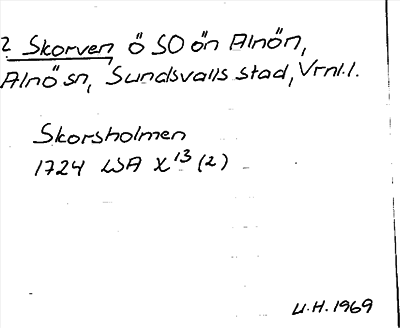 2 Skorven ö SO ön Alnön,
Alnö sn, Sundsvalls stad, Vrnl.l.
Skorsholmen
1724 LSA X¹³ (2)
U.H. 1969